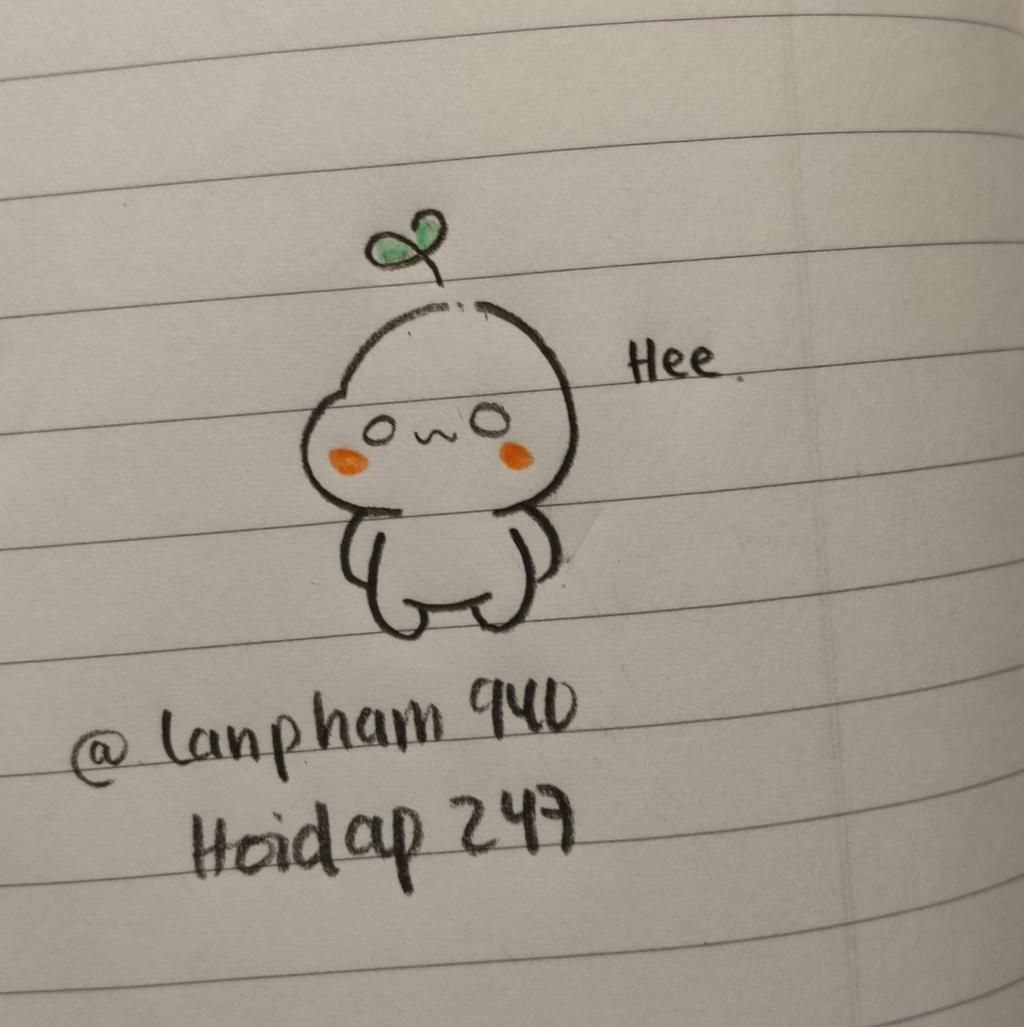 Hee.
@lanpham 940
Hoidap 247